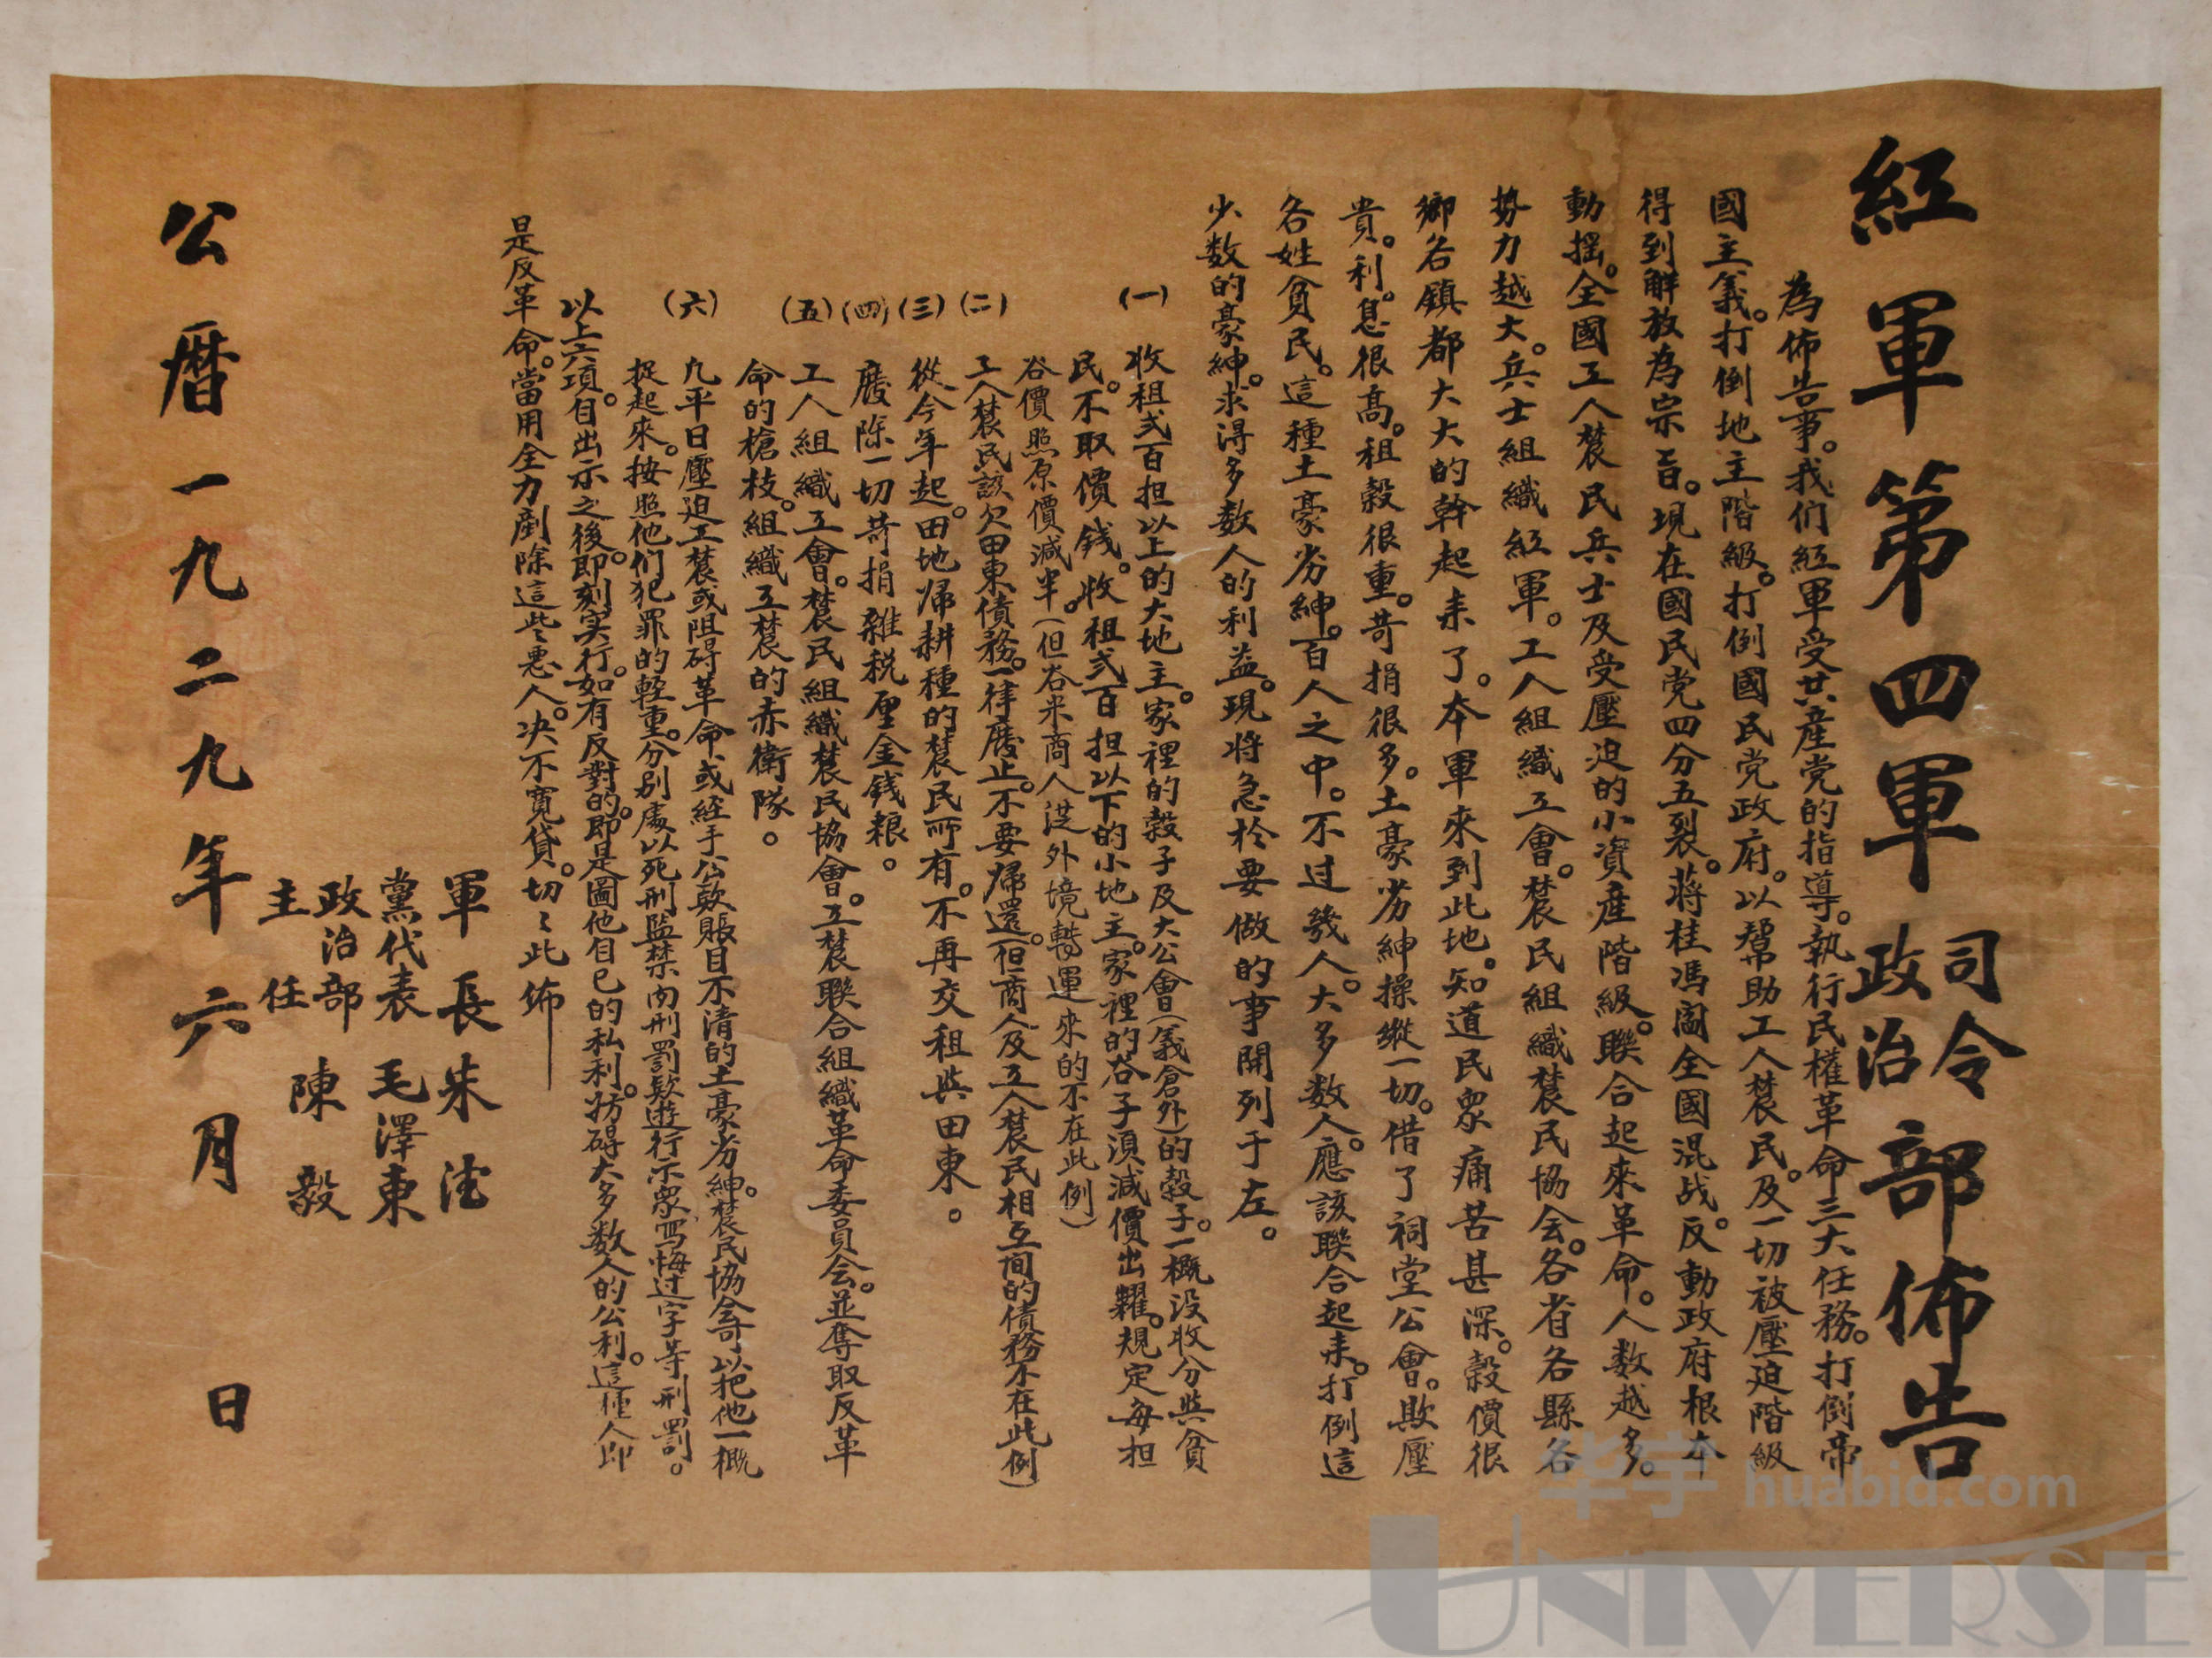 紅軍第四軍司令政治部佈告
為佈告事。我们紅軍受共産党的指導。執行民權革命三大任務。打倒帝
國主義。打倒地主階級。打倒國民党政府。以幫助工人農民。及一切被壓迫階級
得到解放為宗旨。現在國民党四分五裂。蔣桂馮閻全國混战。反動政府根本
動摇。全國工人農民兵士及受壓迫的小資産階級。聯合起來革命。人数越多。
势力越大。兵士組織紅軍。工人組織工會。農民組織農民協会。各省各縣各
鄉各鎮都大大的幹起来了。本軍來到此地。知道民眾痛苦甚深。穀價很
貴。利。息很高。租穀很重。苛捐很多。土豪劣紳操縱一切。借了祠堂公會。欺壓
各姓貧民。這種土豪劣紳。百人之中。不过幾人。大多数人。應該聯合起来。打倒這
少数的豪紳。求得多数人的利益。現将急於要做的事開列于左。
(一) 收租弍百担以上的大地主。家裡的穀子及大公會(義倉外)的穀子。一概没收分與貧
民。不取價钱。收租弍百担以下的小地主。家裡的谷子須減價出糶。規定每担
谷價照原價減半。(但谷米商人從外境轉運來的不在此例)
(二) 工人農民該欠田東債務。一律廢止。不要歸還。(但商人及工人農民相互间的債務不在此例)
(三) 從今年起。田地歸耕種的農民所有。不再交租與田東。
(四) 廢除一切苛捐雜税厘金钱粮。
(五) 工人組織工會。農民組織農民協會。工農聯合組織革命委員会。並奪取反革
命的槍枝。組織工農的赤衛隊。
(六) 凡平日壓迫工農或阻碍革命、或經手公款賬目不清的土豪劣紳。農民協会可以把他一概
捉起來。按照他们犯罪的輕重。分别處以死刑監禁肉刑罰款遊行示眾写悔过字等刑罰。
以上六項。自出示之後。即刻实行。如有反對的。即是圖他自己的私利。妨碍大多数人的公利。這種人即
是反革命。當用全力剷除這些恶人。决不寬貸。切々此佈
軍長朱德
黨代表毛澤東
政治部主任陳毅
公曆一九二九年六月 日
华宇 huabid.com
UNIVERSE